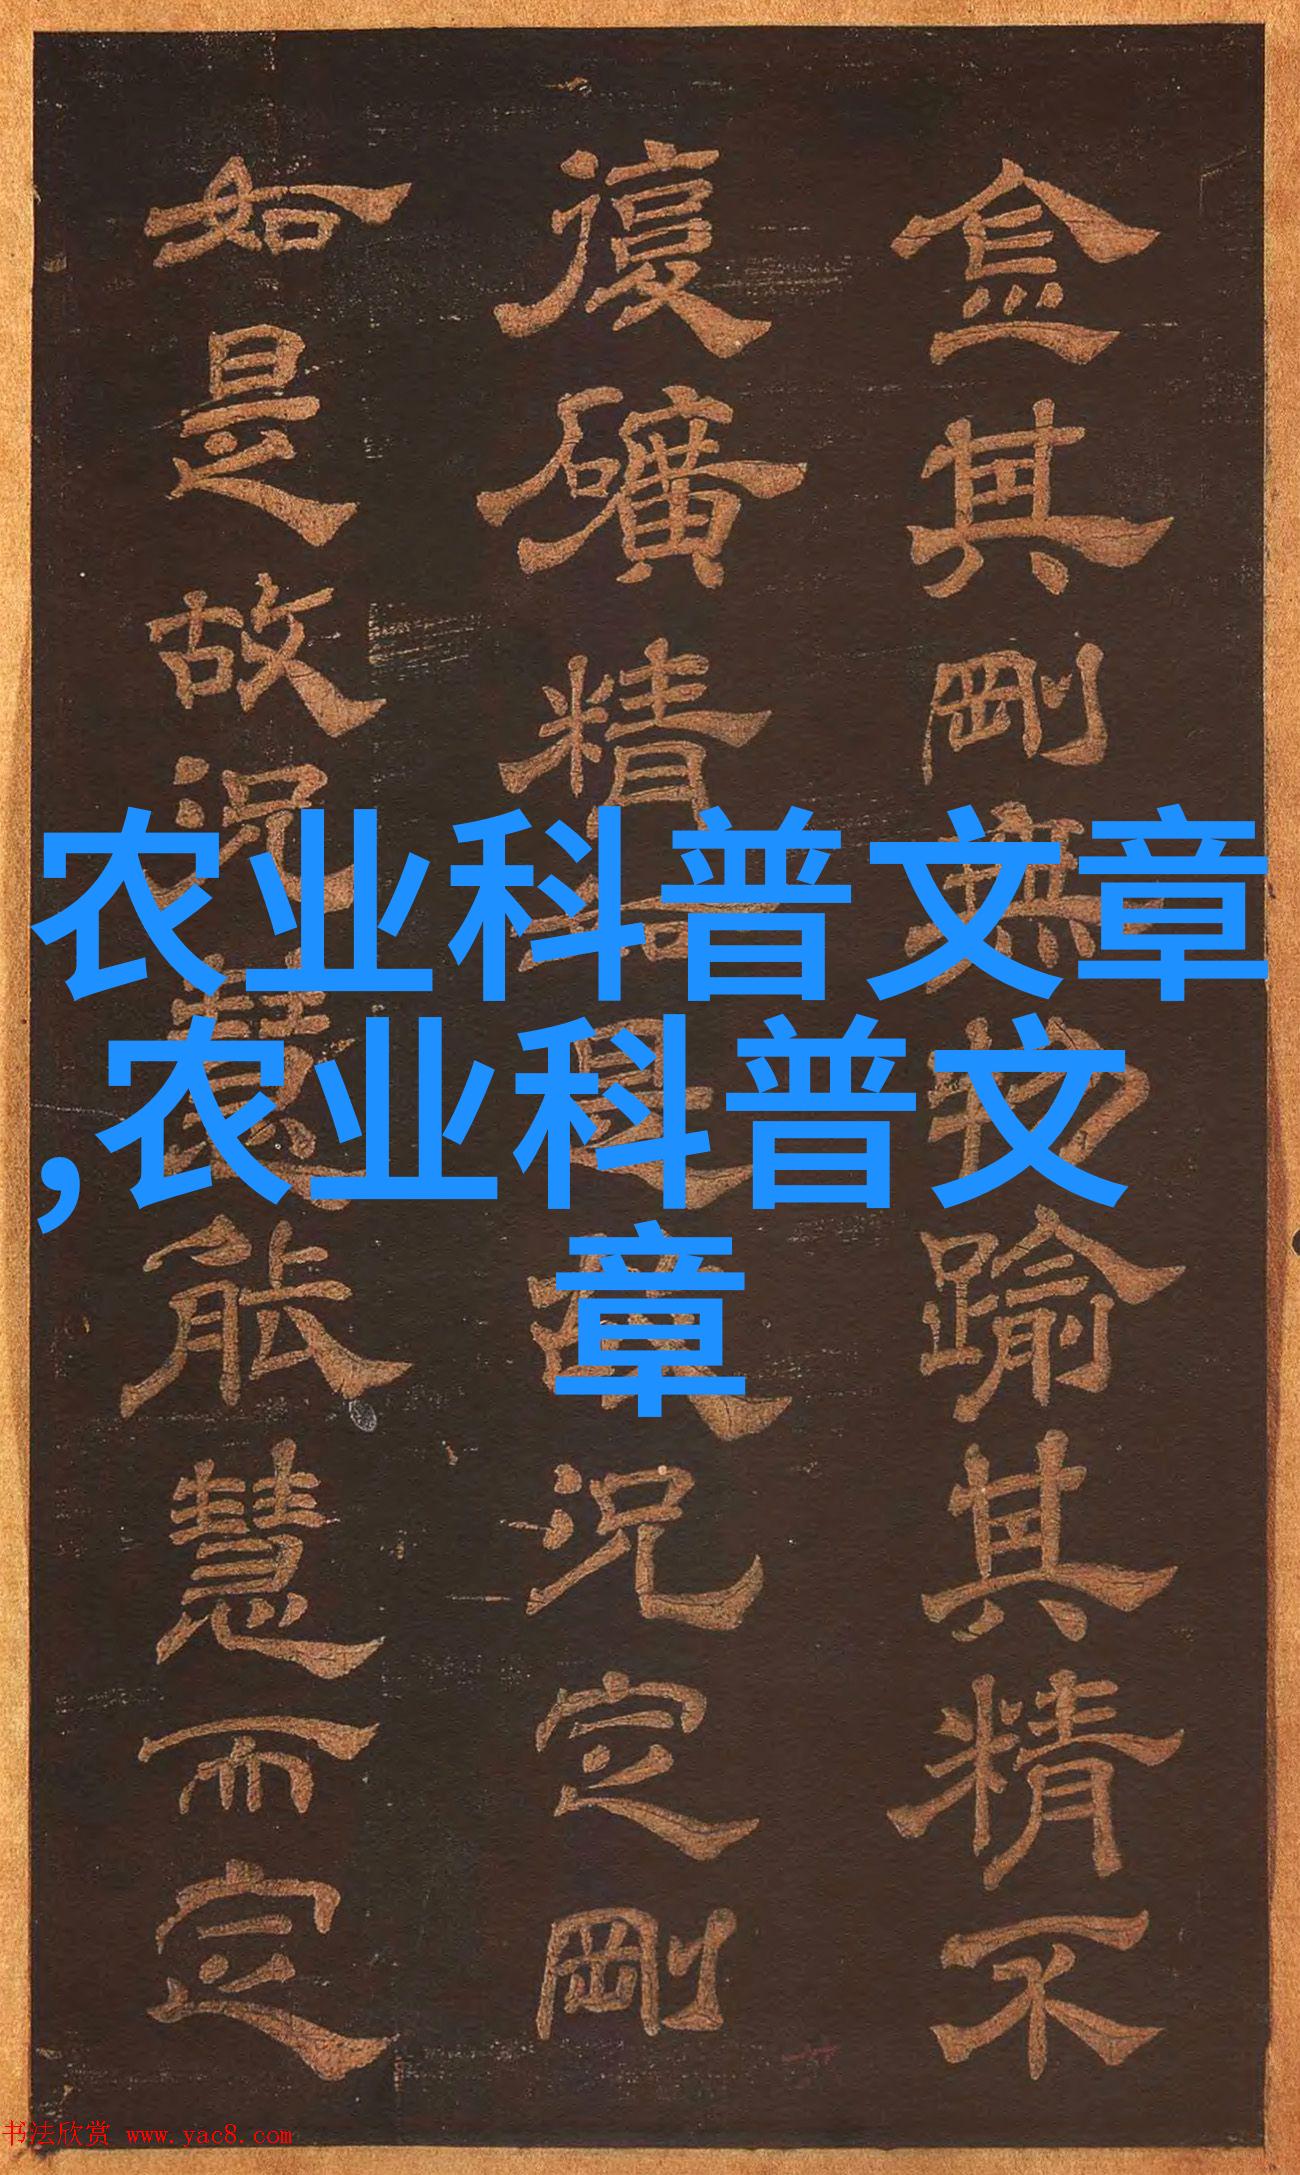 金其剛無物踰其精不
復礦精是故況定剛
如是故況慧能慧而定
农业科普文章
,农业科普文
章
书法欣赏 www.yac8.com